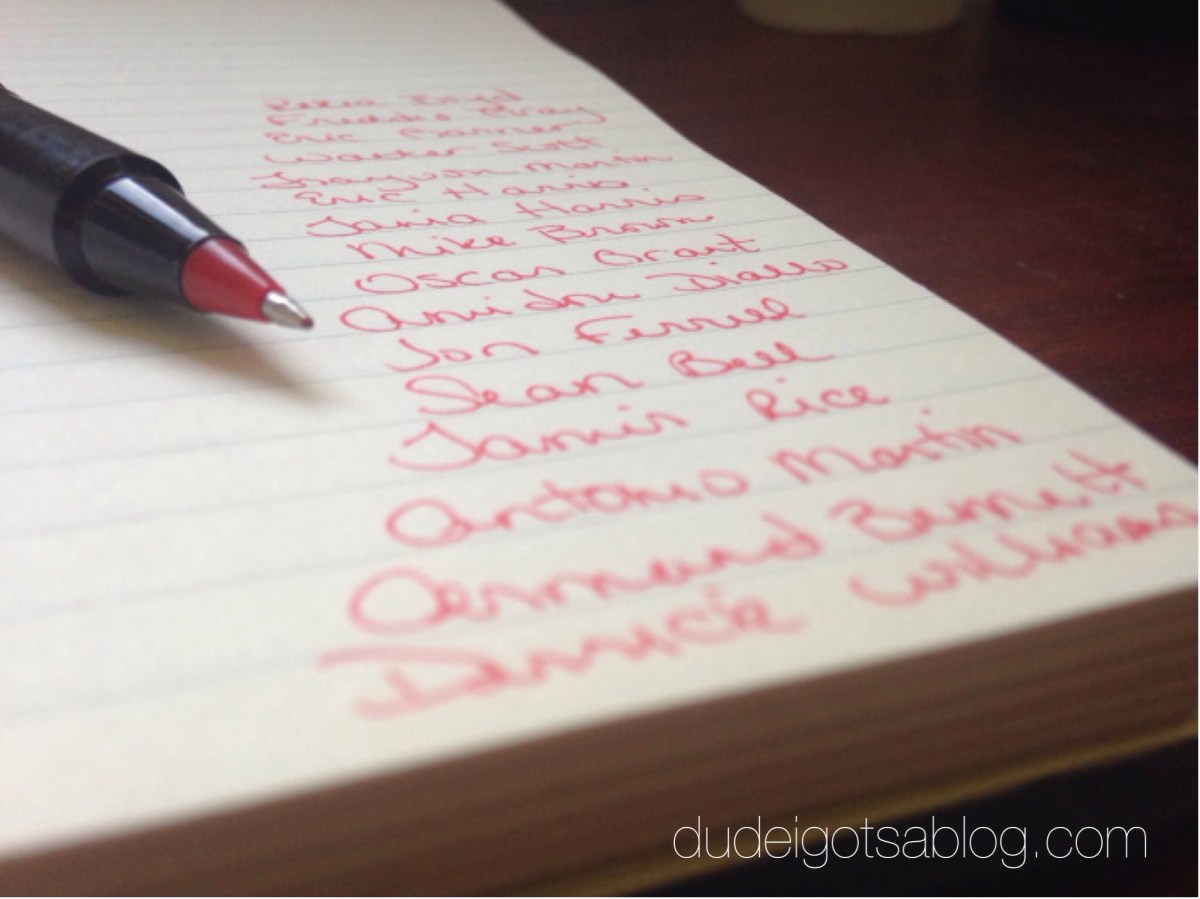 Rekia Boyd
Freddie Gray
Eric Garner
Walter Scott
Trayvon Martin
Eric Harris
Tania Harris
Mike Brown
Oscar Grant
Amidou Diallo
Jon Ferrell
Sean Bell
Tamir Rice
Antonio Martin
Armand Bennett
Derrick Williams
dudeigotsablog.com